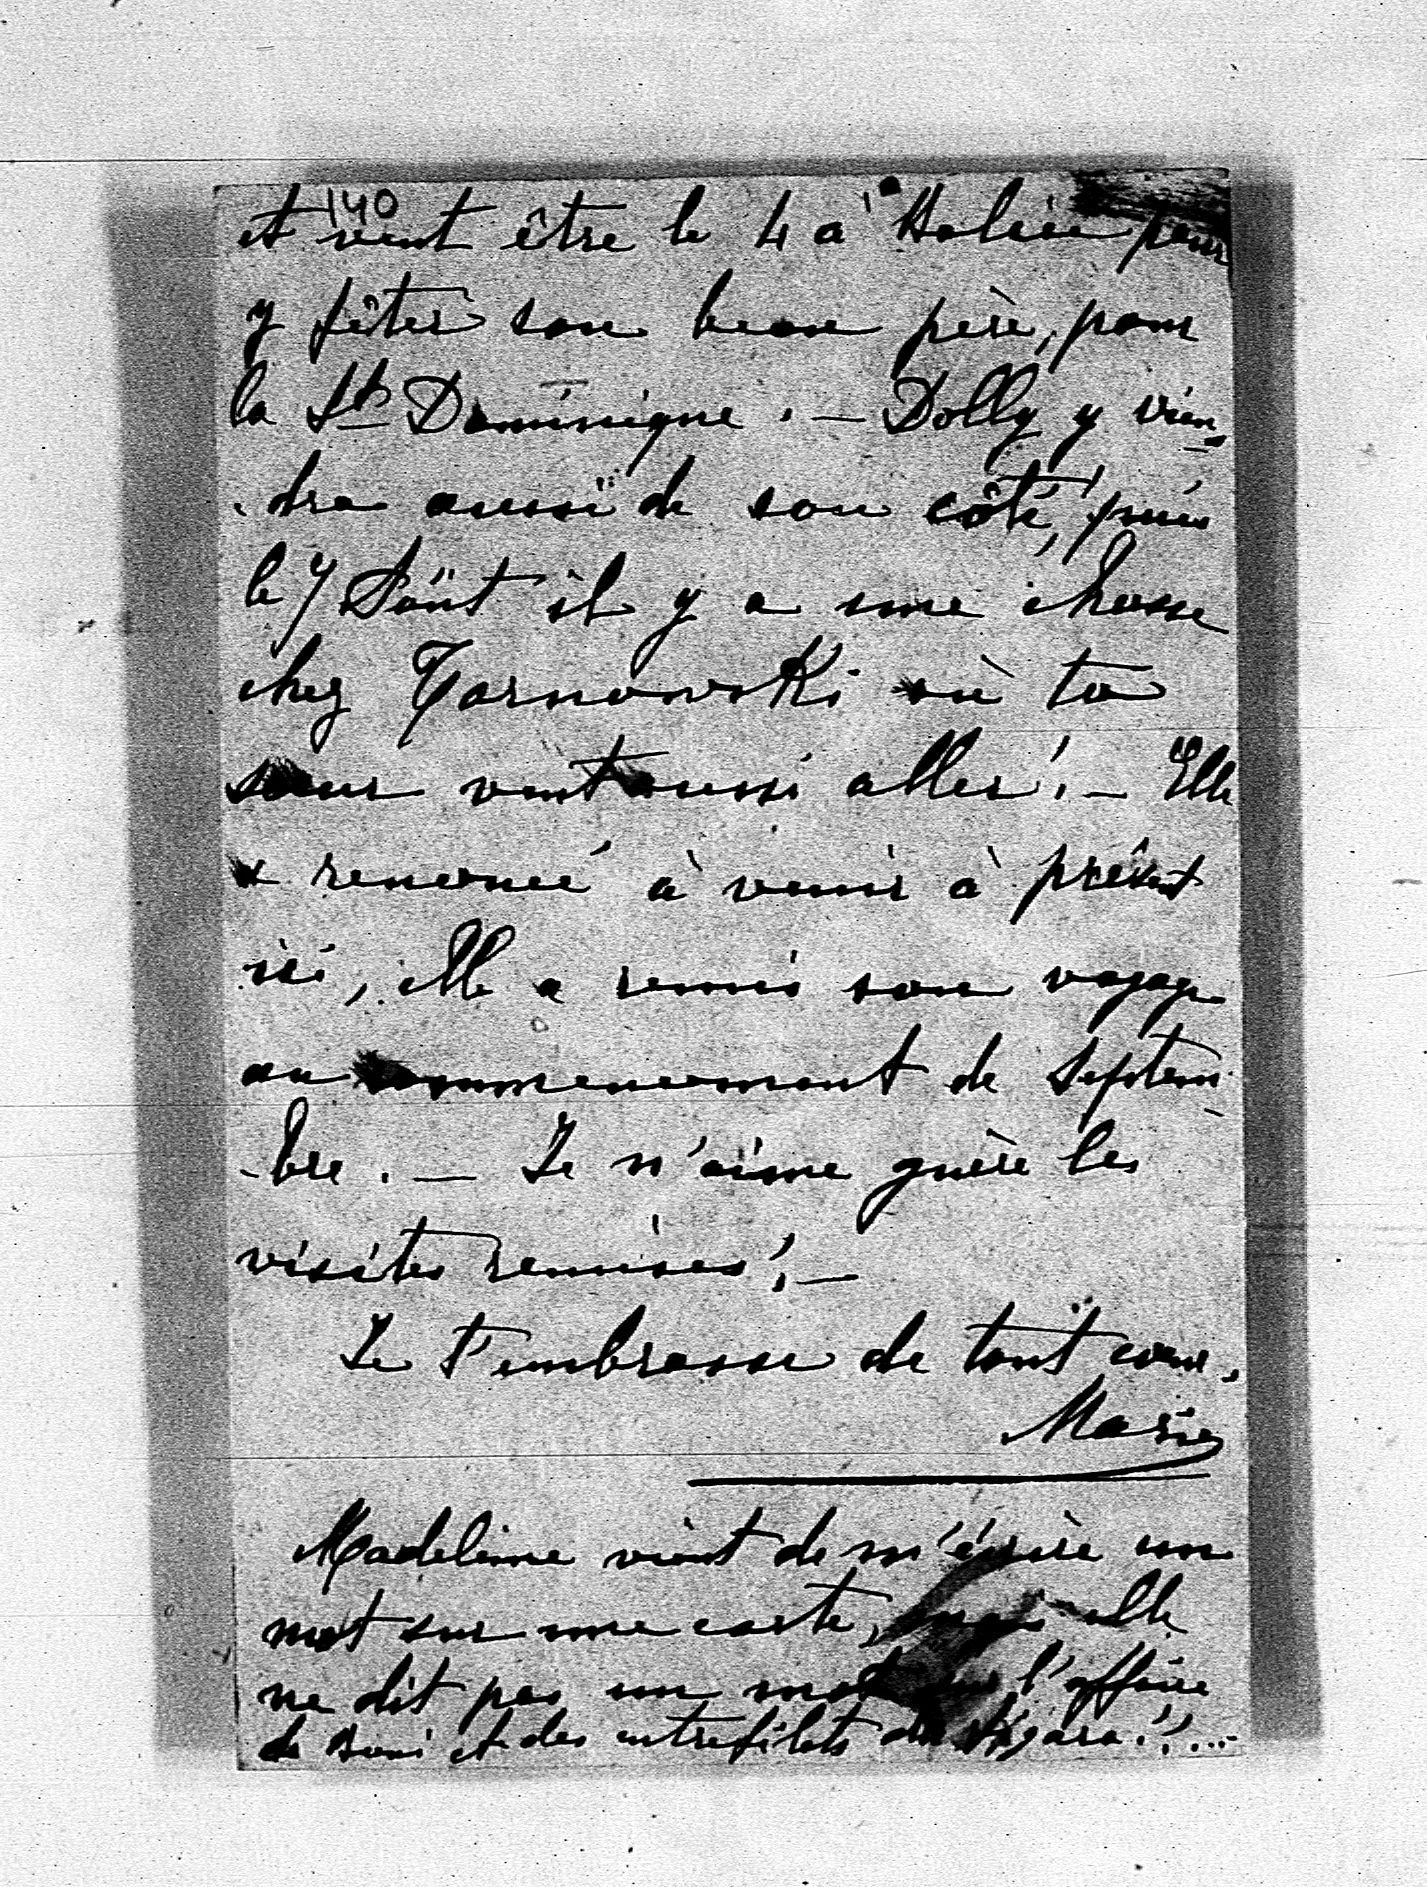 140
et veut être le 4 à Holicé pour
y fêter son beau père, pour
la St Dominique. — Dolly y vien-
-dra aussi de son côté, puis
le 7 Août il y a une chasse
chez Tarnowski où ta
sœur veut aussi aller! — Elle
a renoncé à venir à présent
ici, elle a remis son voyage
au commencement de Septem-
-bre. — Je n'aime guère les
visites remises! —
Je t'embrasse de tout cœur,
Marie
Madeleine vient de m'écrire un
mot sur une carte, mais elle
ne dit pas un mot de l'affaire
de Boni et des entrefilets du Figaro!!...